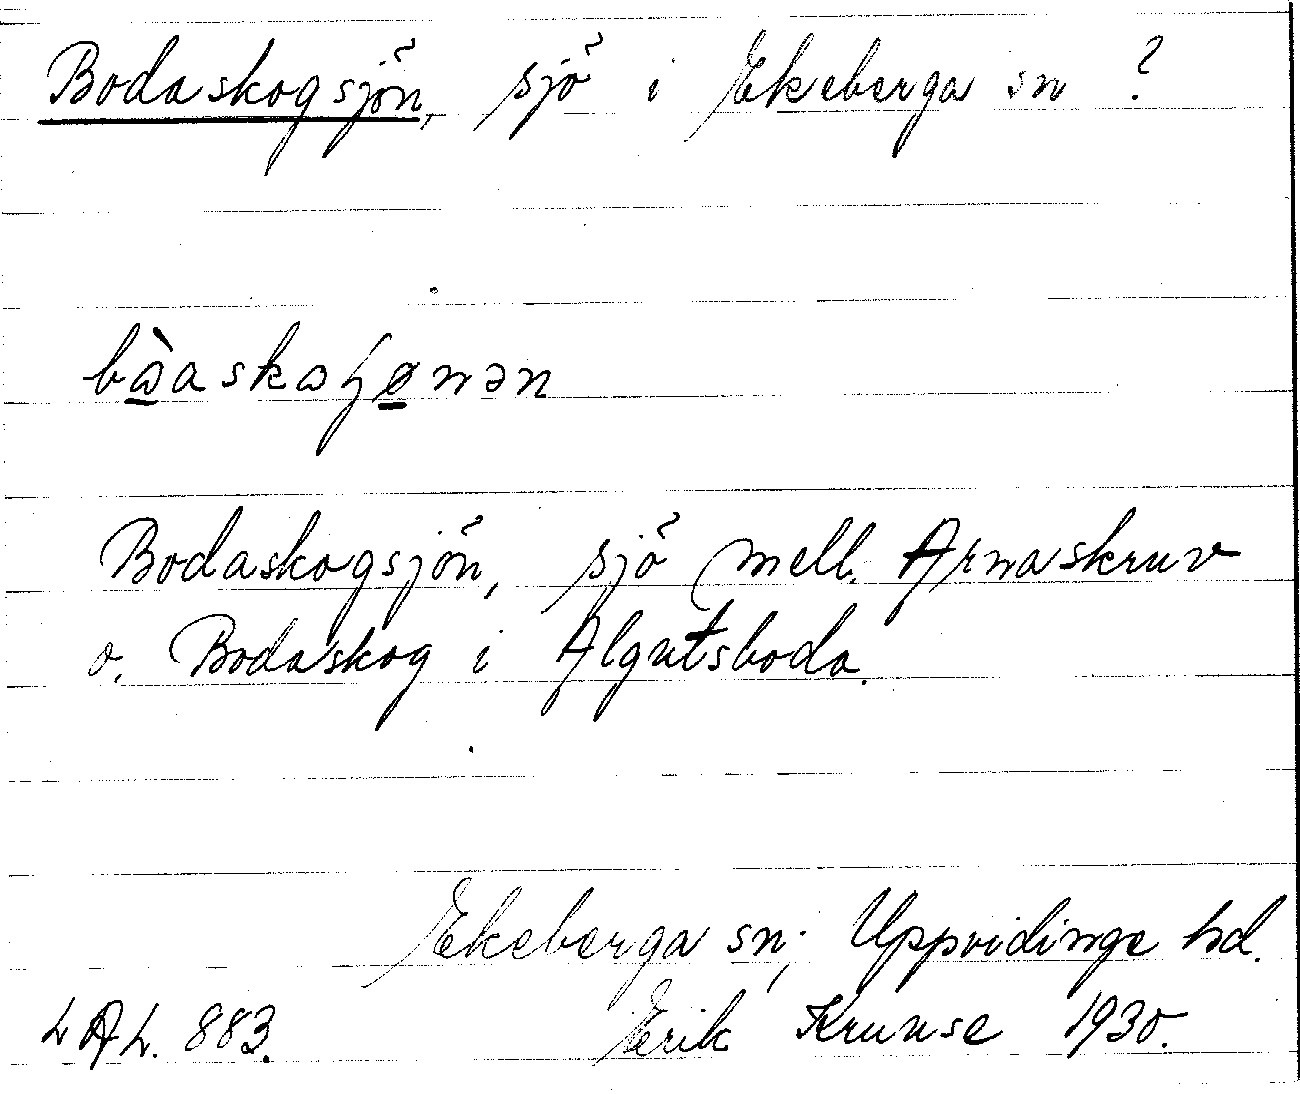 Bodaskogsjön, sjö i Ekeberga sn ?
Bodaskogsjön, sjö mell. Arnaskruv
o. Bodaskog i Algutsboda.
Ekeberga sn; Uppvidinge hd.
LAL. 883. Erik Kruuse 1930.